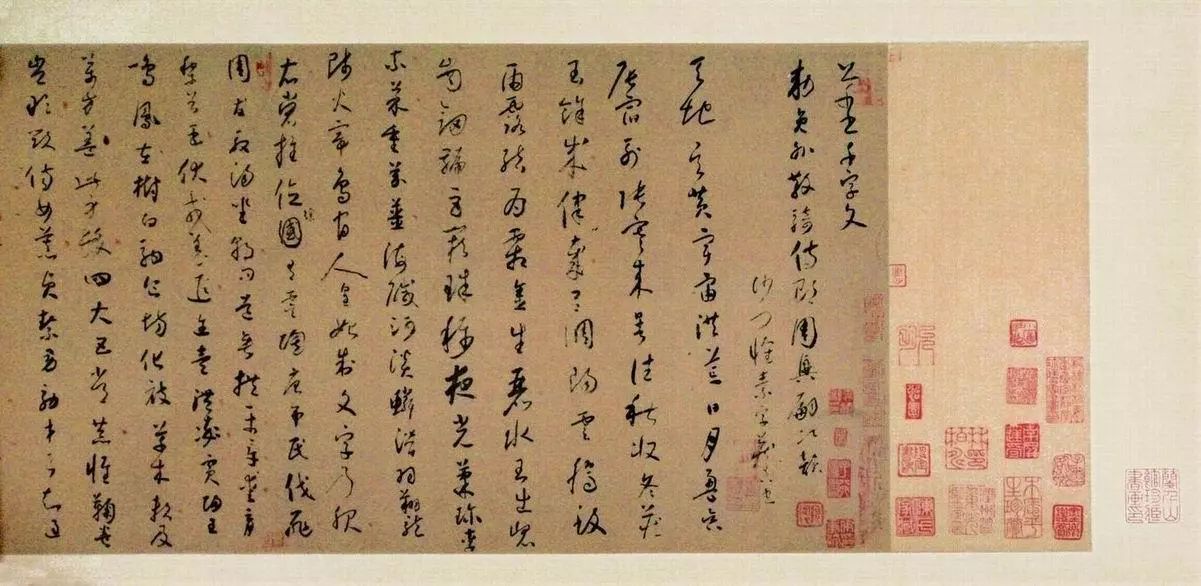 千字文
敕員外散騎侍郎周興嗣次韻
沙門懷素字藏真也
天地玄黃宇宙洪荒日月盈昃
辰宿列張寒来暑往秋收冬藏
閏餘成律歲呂調陽雲騰致
雨露結為霜金生麗水玉出崐
崗劒號巨闕珠稱夜光菓珍李
柰菜重芥薑海鹹河淡鱗潛羽翔龍
師火帝鳥官人皇始制文字乃服
衣裳推位讓國有虞陶唐弔民伐罪
周發殷湯坐朝問道垂拱平章愛育
黎首臣伏戎羌遐邇壹體率賓歸王
鳴鳳在樹白駒食場化被草木賴及
萬方蓋此身髮四大五常恭惟鞠養
豈敢毀傷女慕貞潔男效才良知過